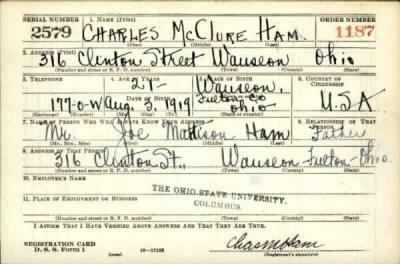 SERIAL NUMBER 1. NAME (Print) ORDER NUMBER
2579 CHARLES McCLURE HAM. 1187
(First) (Middle) (Last)
2. ADDRESS (Print)
316 Clinton Street Wauseon Ohio
(Number and street or R. F. D. number) (Town) (County) (State)
3. TELEPHONE 4. AGE IN YEARS 5. PLACE OF BIRTH 6. COUNTRY OF CITIZENSHIP
21- Wauseon,
Fulton-Co
177-0-W Aug, 3, 1919 Ohio U.S.A
7. NAME OF PERSON WHO WILL ALWAYS KNOW YOUR ADDRESS 8. RELATIONSHIP OF THAT PERSON
Mr. Joe Mattison Ham Father
(Mr., Mrs., Miss) (First) (Middle) (Last)
9. ADDRESS OF THAT PERSON
316 Clinton St., Wauseon Fulton-Ohio.
(Number and street or R. F. D. number) (Town) (County) (State)
10. EMPLOYER'S NAME
THE OHIO STATE UNIVERSITY,
11. PLACE OF EMPLOYMENT OR BUSINESS
COLUMBUS.
(Number and street or R. F. D. number) (Town) (County) (State)
I AFFIRM THAT I HAVE VERIFIED ABOVE ANSWERS AND THAT THEY ARE TRUE.
REGISTRATION CARD
D. S. S. Form 1 16-17105 Chas M Ham
(Registrant's signature)